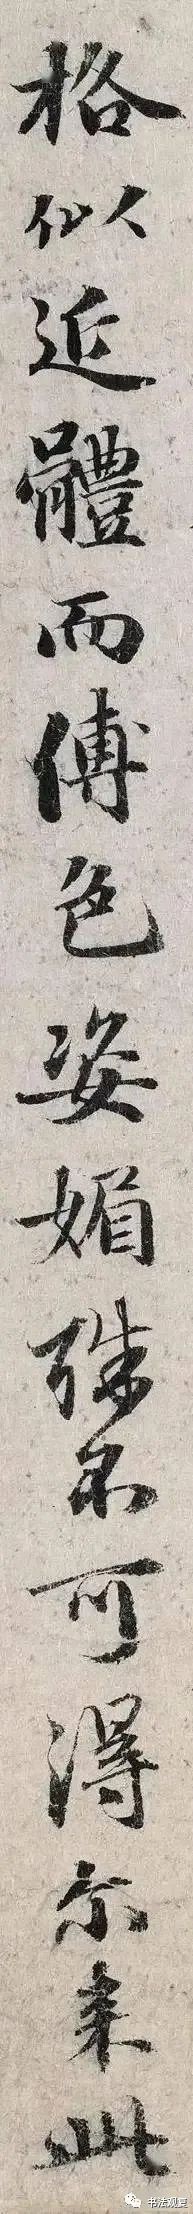 格似近體而傅色姿媚殊不可得尔来此
书法观复